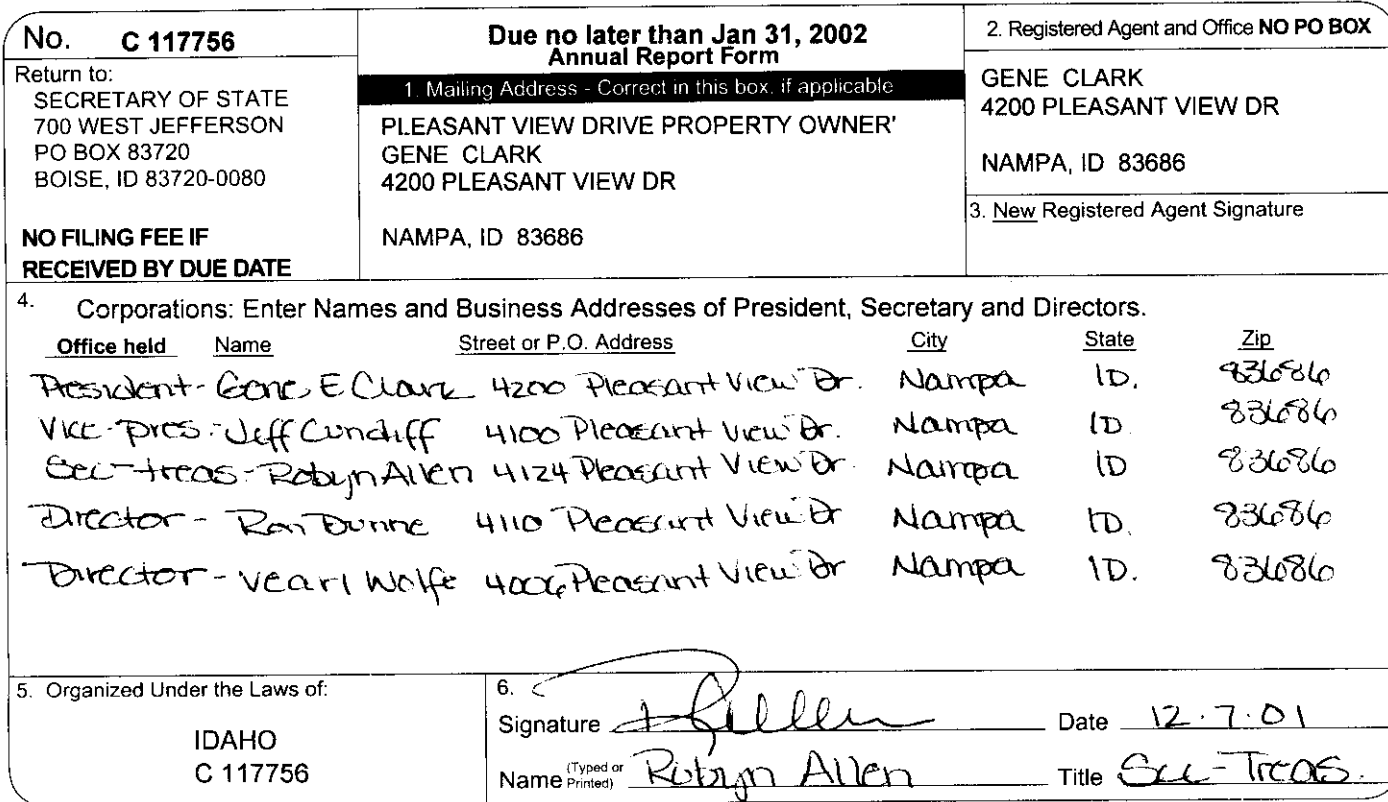 No. C 117756
Return to:
SECRETARY OF STATE
700 WEST JEFFERSON
PO BOX 83720
BOISE, ID 83720-0080
NO FILING FEE IF
RECEIVED BY DUE DATE
Due no later than Jan 31, 2002
Annual Report Form
1. Mailing Address - Correct in this box, if applicable
PLEASANT VIEW DRIVE PROPERTY OWNER'
GENE CLARK
4200 PLEASANT VIEW DR
NAMPA, ID 83686
2. Registered Agent and Office NO PO BOX
GENE CLARK
4200 PLEASANT VIEW DR
NAMPA, ID 83686
3. New Registered Agent Signature
4. Corporations: Enter Names and Business Addresses of President, Secretary and Directors.
Office held Name Street or P.O. Address City State Zip
President - Gene E Clark 4200 Pleasant View Dr. Nampa ID. 83686
Vice-pres. - Jeff Cundiff 4100 Pleasant View Dr. Nampa ID 83686
Sec-treas - Robyn Allen 4124 Pleasant View Dr. Nampa ID 83686
Director - Ron Dunne 4110 Pleasant View Dr Nampa ID. 83686
Director - Vearl Wolfe 4006 Pleasant View Dr Nampa ID. 83686
5. Organized Under the Laws of:
IDAHO
C 117756
6.
Signature Date 12.7.01
Name (Typed or Printed) Robyn Allen Title Sec-Treas.